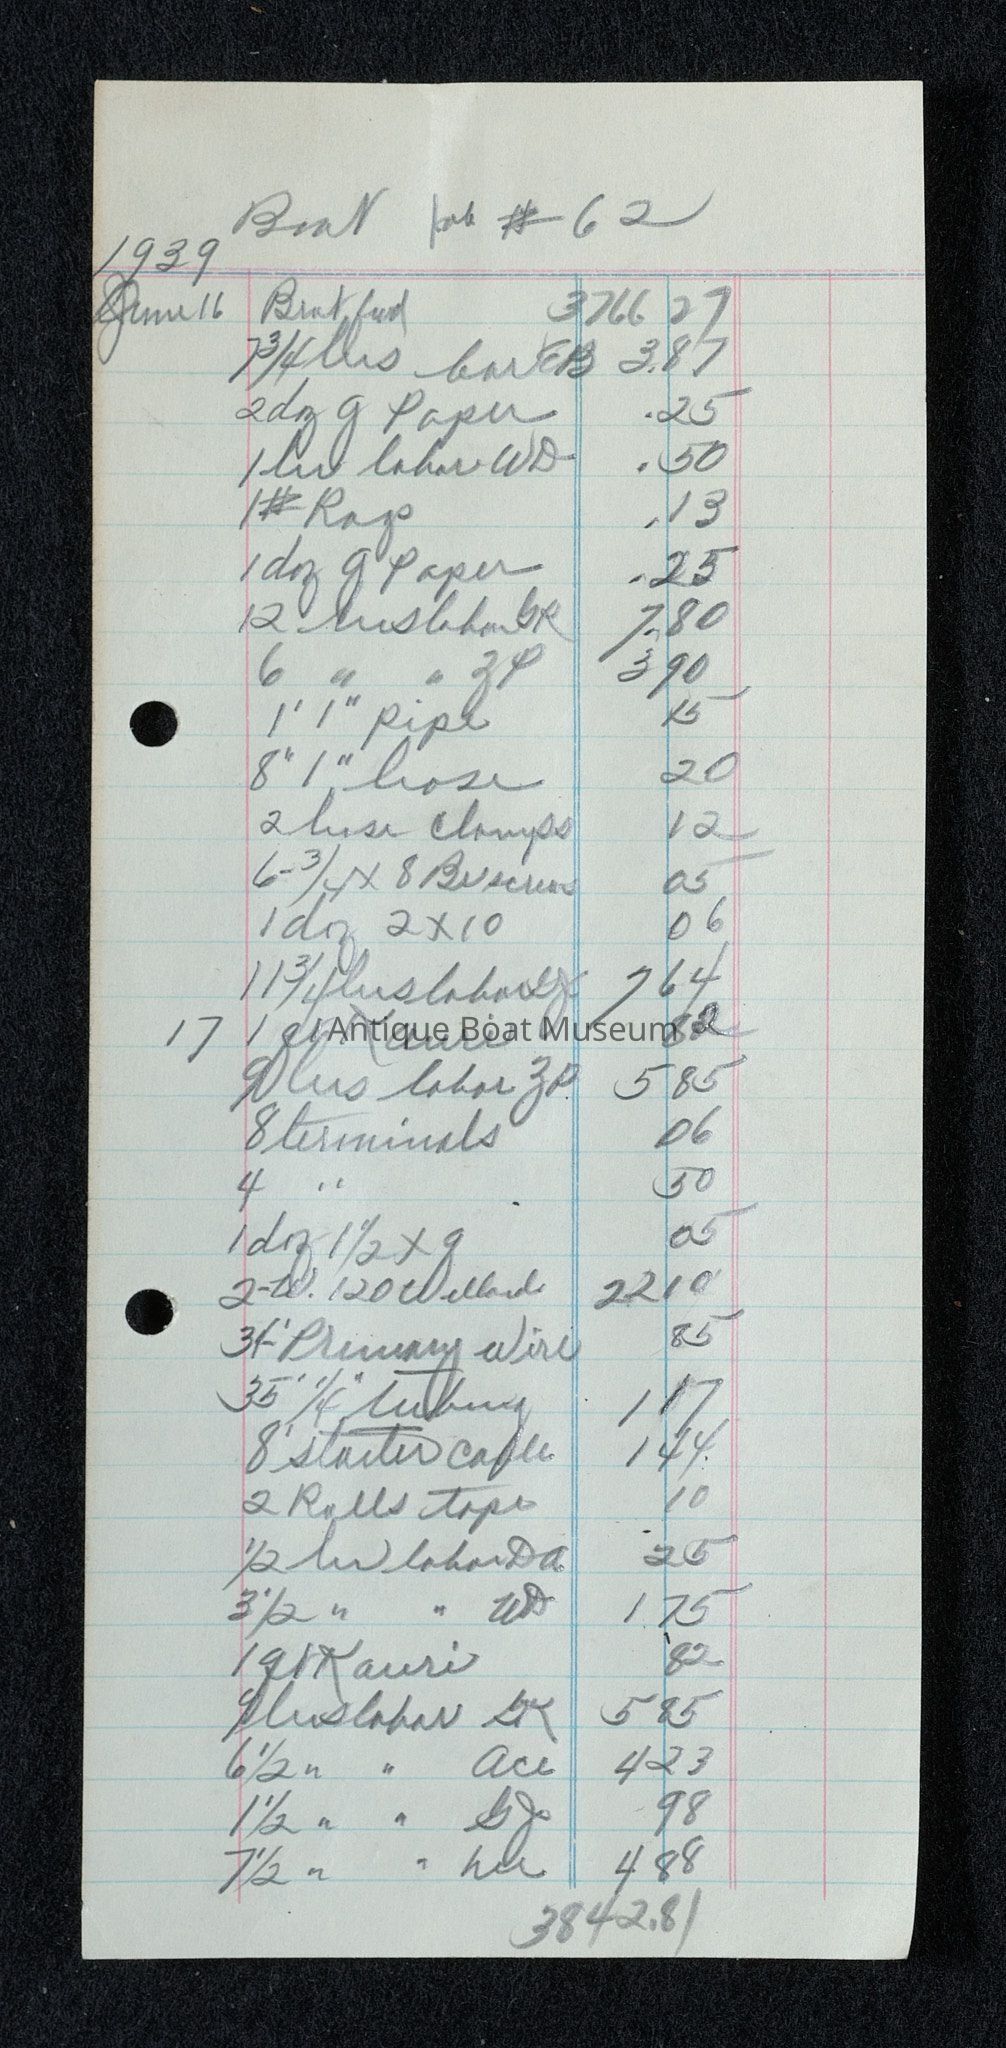 Boat Job # 62
1939
June 16 Brot fwd 3766 27
7 3/4 hrs labor EB 3.87
2 doz g Paper .25
1 hr labor WD .50
1# Rags .13
1 doz g Paper .25
12 hrs labor GK 7.80
6 " " ZP 3 90
1' 1" pipe 15
8" 1" hose 20
2 hose clamps 12
6-3/4 x 8 Br screws 05
1 doz 2 x 10 06
11 3/4 hrs labor 7 64
17 1 qt Kauri 82
Antique Boat Museum
9 hrs labor ZP 5 85
8 terminals 06
4 " 50
1 doz 1 1/2 x 9 05
2- 120 Willards 22 10
34' Primary wire 85
35' 1/4" tubing 1 17
8' starter cable 1 44
2 Rolls tape 10
1/2 hr labor DA 25
3 1/2 " " WD 1 75
1 qt Kauri 82
9 hrs labor GK 5 85
6 1/2 " " Ace 4 23
1 1/2 " " GJ 98
7 1/2 " " 4 88
3842.81